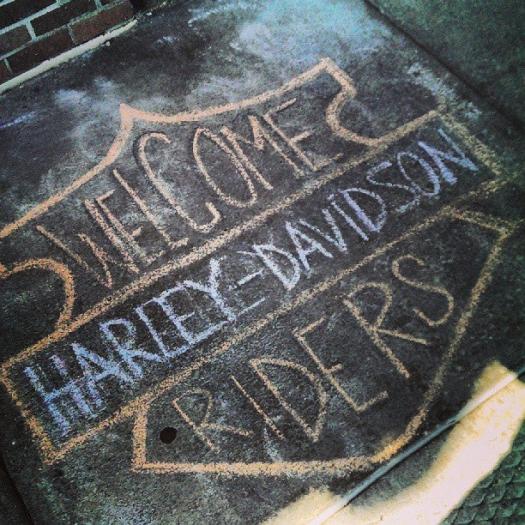 WELCOME
HARLEY-DAVIDSON
RIDERS